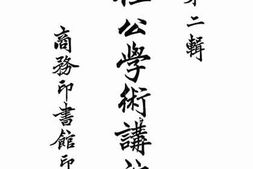 第二輯
任公學術講演
商務印書館印